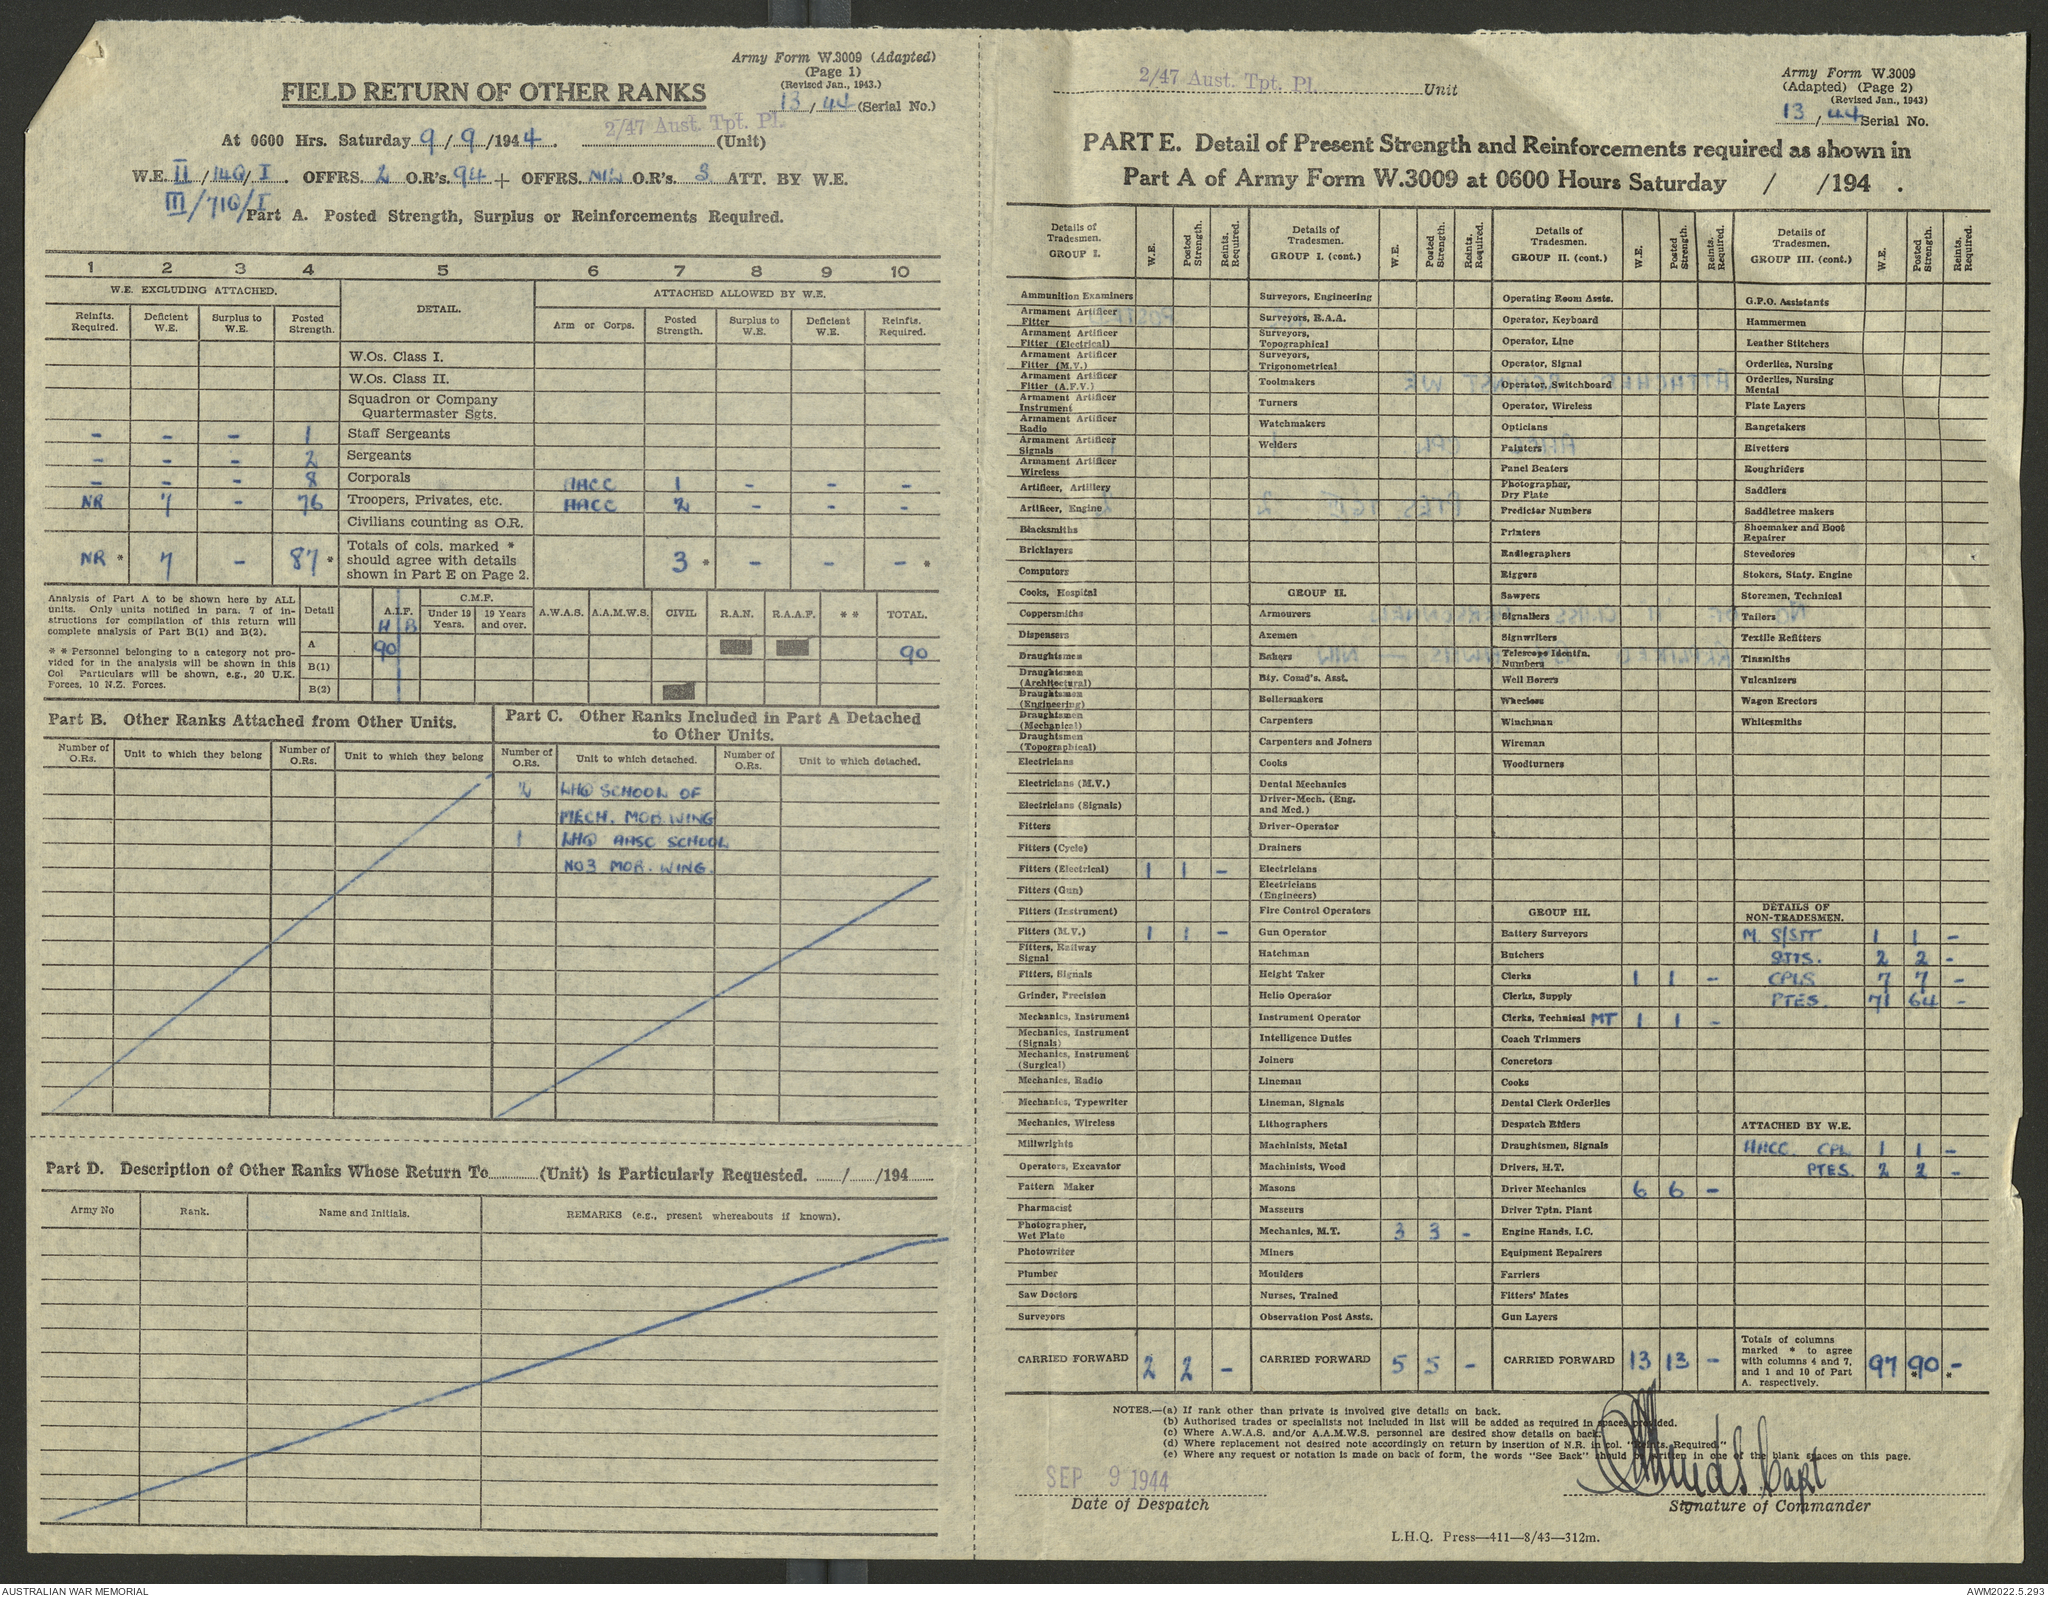 Army Form W.3009 (Adapted)
(Page 1)
(Revised Jan., 1943.)
13 / 44 (Serial No.)
FIELD RETURN OF OTHER RANKS
2/47 Aust. Tpt. Pl.
At 0600 Hrs. Saturday 9 / 9 /1944. (Unit)
W.E. II / 140 / I . OFFRS. 2 O.R's. 94 + OFFRS. NIL O.R's. 3 ATT. BY W.E.
III/710/I
Part A. Posted Strength, Surplus or Reinforcements Required.
1 2 3 4 5 6 7 8 9 10
W.E. EXCLUDING ATTACHED. DETAIL. ATTACHED ALLOWED BY W.E.
Reinfts. Required. Deficient W.E. Surplus to W.E. Posted Strength. Arm or Corps. Posted Strength. Surplus to W.E. Deficient W.E. Reinfts. Required.
W.Os. Class I.
W.Os. Class II.
Squadron or Company
Quartermaster Sgts.
- - - 1 Staff Sergeants
- - - 2 Sergeants
- - - 8 Corporals AACC 1 - - -
NR 7 - 76 Troopers, Privates, etc. AACC 2 - - -
Civilians counting as O.R.
NR * 7 - 87 * Totals of cols. marked * should agree with details shown in Part E on Page 2. 3 * - - - *
Analysis of Part A to be shown here by ALL
units. Only units notified in para. 7 of in-
structions for compilation of this return will
complete analysis of Part B(1) and B(2).
* * Personnel belonging to a category not pro-
vided for in the analysis will be shown in this
Col Particulars will be shown, e.g., 20 U.K.
Forces, 10 N.Z. Forces.
Detail A.I.F. C.M.F. A.W.A.S. A.A.M.W.S. CIVIL R.A.N. R.A.A.F. * * TOTAL.
H B Under 19 Years. 19 Years and over.
A 90 90
B(1)
B(2)
Part B. Other Ranks Attached from Other Units.
Number of O.Rs. Unit to which they belong Number of O.Rs. Unit to which they belong
Part C. Other Ranks Included in Part A Detached
to Other Units.
Number of O.Rs. Unit to which detached. Number of O.Rs. Unit to which detached.
2 LHQ SCHOOL OF
MECH. MOB. WING
1 LHQ AASC SCHOOL
NO3 MOB. WING.
Part D. Description of Other Ranks Whose Return To (Unit) is Particularly Requested. / /194
Army No Rank. Name and Initials. REMARKS (e.g., present whereabouts if known).
2/47 Aust. Tpt. Pl. Unit
Army Form W.3009
(Adapted) (Page 2)
(Revised Jan., 1943)
13 / 44 Serial No.
PART E. Detail of Present Strength and Reinforcements required as shown in
Part A of Army Form W.3009 at 0600 Hours Saturday / /194 .
Details of Tradesmen. GROUP I. W.E. Posted Strength. Reints. Required.
Ammunition Examiners
Armament Artificer Fitter
Armament Artificer Fitter (Electrical)
Armament Artificer Fitter (M.V.)
Armament Artificer Fitter (A.F.V.)
Armament Artificer Instrument
Armament Artificer Radio
Armament Artificer Signals
Armament Artificer Wireless
Artificer, Artillery
Artificer, Engine
Blacksmiths
Bricklayers
Computors
Cooks, Hospital
Coppersmiths
Dispensers
Draughtsmen
Draughtsmen (Architectural)
Draughtsmen (Engineering)
Draughtsmen (Mechanical)
Draughtsmen (Topographical)
Electricians
Electricians (M.V.)
Electricians (Signals)
Fitters
Fitters (Cycle)
Fitters (Electrical) 1 1 -
Fitters (Gun)
Fitters (Instrument)
Fitters (M.V.) 1 1 -
Fitters, Railway Signal
Fitters, Signals
Grinder, Precision
Mechanics, Instrument
Mechanics, Instrument (Signals)
Mechanics, Instrument (Surgical)
Mechanics, Radio
Mechanics, Typewriter
Mechanics, Wireless
Millwrights
Operators, Excavator
Pattern Maker
Pharmacist
Photographer, Wet Plate
Photowriter
Plumber
Saw Doctors
Surveyors
CARRIED FORWARD 2 2 -
Details of Tradesmen. GROUP I. (cont.) W.E. Posted Strength. Reints. Required.
Surveyors, Engineering
Surveyors, R.A.A.
Surveyors, Topographical
Surveyors, Trigonometrical
Toolmakers
Turners
Watchmakers
Welders
GROUP II.
Armourers
Axemen
Bakers
Bty. Comd's. Asst.
Boilermakers
Carpenters
Carpenters and Joiners
Cooks
Dental Mechanics
Driver-Mech. (Eng. and Med.)
Driver-Operator
Drainers
Electricians
Electricians (Engineers)
Fire Control Operators
Gun Operator
Hatchman
Height Taker
Helio Operator
Instrument Operator
Intelligence Duties
Joiners
Lineman
Lineman, Signals
Lithographers
Machinists, Metal
Machinists, Wood
Masons
Masseurs
Mechanics, M.T. 3 3 -
Miners
Moulders
Nurses, Trained
Observation Post Assts.
CARRIED FORWARD 5 5 -
Details of Tradesmen. GROUP II. (cont.) W.E. Posted Strength. Reints. Required.
Operating Room Assts.
Operator, Keyboard
Operator, Line
Operator, Signal
Operator, Switchboard
Operator, Wireless
Opticians
Painters
Panel Beaters
Photographer, Dry Plate
Predictor Numbers
Printers
Radiographers
Riggers
Sawyers
Signallers
Signwriters
Telescope Identfn. Numbers
Well Borers
Wheelers
Winchman
Wireman
Woodturners
GROUP III.
Battery Surveyors
Butchers
Clerks 1 1 -
Clerks, Supply
Clerks, Technical MT 1 1 -
Coach Trimmers
Concretors
Cooks
Dental Clerk Orderlies
Despatch Riders
Draughtsmen, Signals
Drivers, H.T.
Driver Mechanics 6 6 -
Driver Tptn. Plant
Engine Hands, I.C.
Equipment Repairers
Farriers
Fitters' Mates
Gun Layers
CARRIED FORWARD 13 13 -
Details of Tradesmen. GROUP III. (cont.) W.E. Posted Strength. Reints. Required.
G.P.O. Assistants
Hammermen
Leather Stitchers
Orderlies, Nursing
Orderlies, Nursing Mental
Plate Layers
Rangetakers
Rivetters
Roughriders
Saddlers
Saddletree makers
Shoemaker and Boot Repairer
Stevedores
Stokers, Staty. Engine
Storemen, Technical
Tailers
Textile Refitters
Tinsmiths
Vulcanizers
Wagon Erectors
Whitesmiths
DETAILS OF NON-TRADESMEN.
M. S/SJT 1 1 -
SJTS. 2 2 -
CPLS 7 7 -
PTES. 71 64 -
ATTACHED BY W.E.
AACC. CPL 1 1 -
PTES. 2 2 -
Totals of columns marked * to agree with columns 4 and 7, and 1 and 10 of Part A. respectively. 97 90 * - *
NOTES.—(a) If rank other than private is involved give details on back.
(b) Authorised trades or specialists not included in list will be added as required in spaces provided.
(c) Where A.W.A.S. and/or A.A.M.W.S. personnel are desired show details on back.
(d) Where replacement not desired note accordingly on return by insertion of N.R. in col. "Reints. Required."
(e) Where any request or notation is made on back of form, the words "See Back" should be written in one of the blank spaces on this page.
SEP 9 1944
Date of Despatch
Capt
Signature of Commander
L.H.Q. Press—411—8/43—312m.
AUSTRALIAN WAR MEMORIAL
AWM2022.5.293